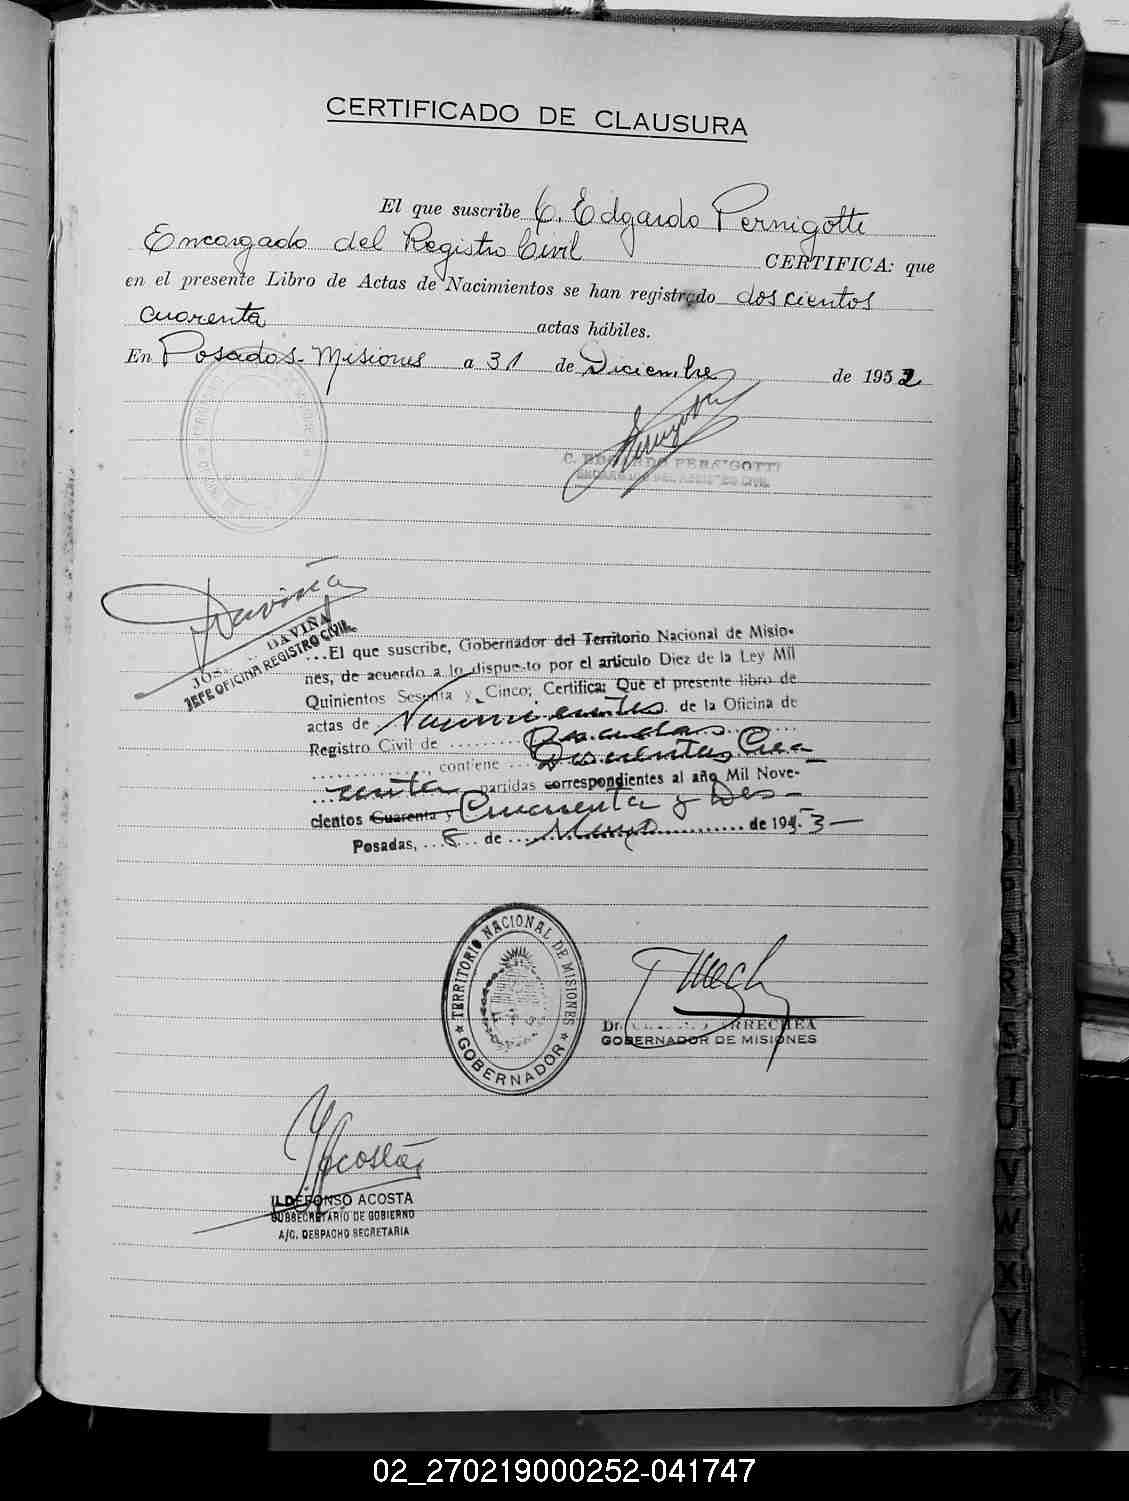 CERTIFICADO DE CLAUSURA
El que suscribe C. Edgardo Pernigotti
Encargado del Registro Civil CERTIFICA: que
en el presente Libro de Actas de Nacimientos se han registrado doscientos
cuarenta actas hábiles.
En Posadas - Misiones a 31 de Diciembre de 1952
C. EDGARDO PERNIGOTTI
ENCARGADO DEL REGISTRO CIVIL
Daviña
DAVIÑA
JEFE OFICINA REGISTRO CIVIL
...El que suscribe, Gobernador del Territorio Nacional de Misio-
nes, de acuerdo a lo dispuesto por el artículo Diez de la Ley Mil
Quinientos Sesenta y Cinco; Certifica: Que el presente libro de
actas de Nacimientos de la Oficina de
Registro Civil de Posadas
contiene Doscientas Cua-
renta partidas correspondientes al año Mil Nove-
cientos Cuarenta y Cincuenta y Dos-
Posadas, 8 de Mayo de 1953-
TERRITORIO NACIONAL DE MISIONES
GOBERNADOR
Dr. ARRECHEA
GOBERNADOR DE MISIONES
Acosta
ILDEFONSO ACOSTA
SUBSECRETARIO DE GOBIERNO
A/C. DESPACHO SECRETARIA
T
U
V
W
X
Y
Z
02_270219000252-041747